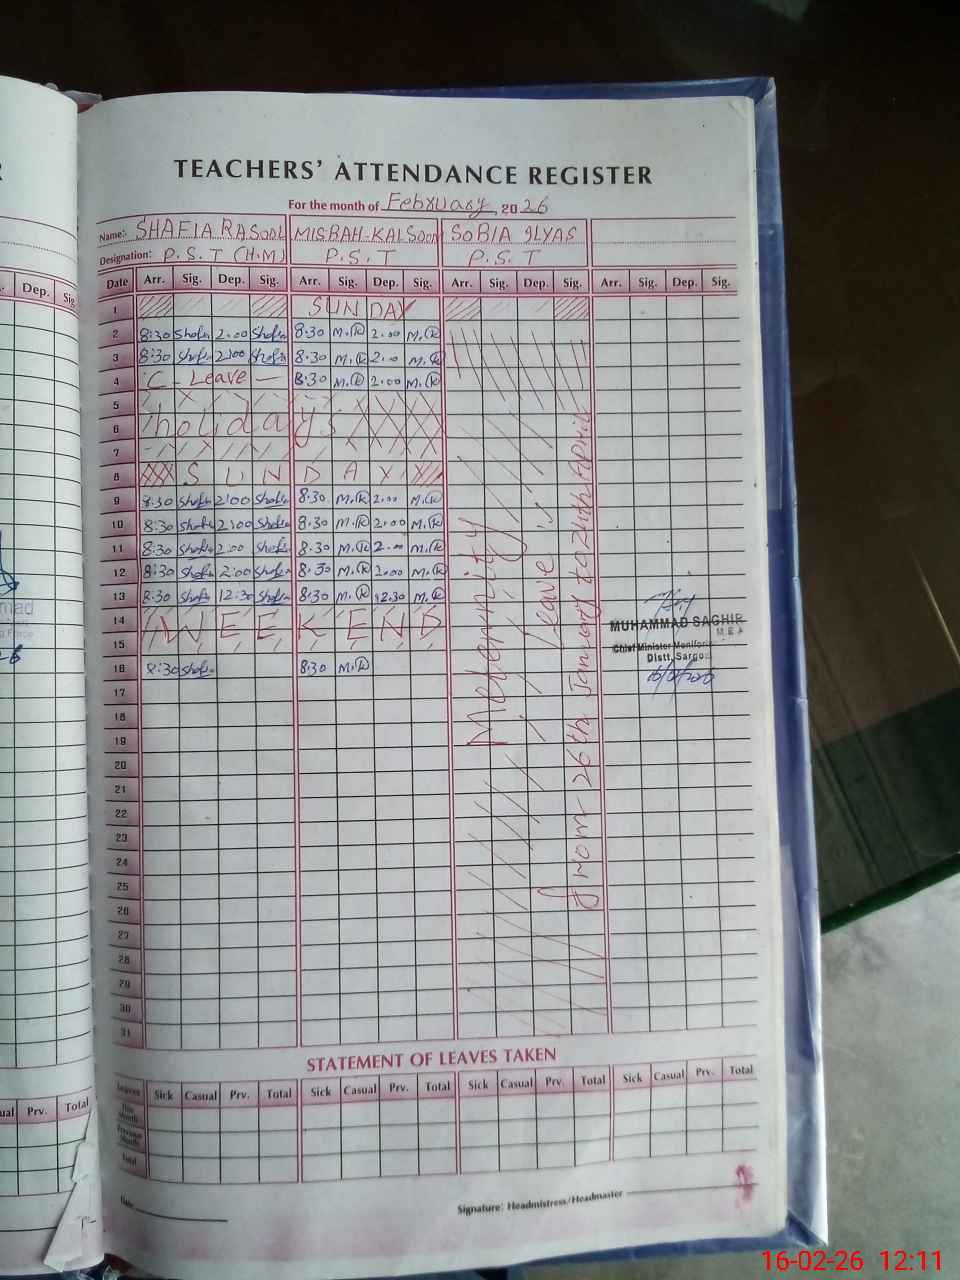 TEACHERS' ATTENDANCE REGISTER
For the month of February, 2026
Name: SHAFIA RASOOL MISBAH-KALSOOM SOBIA ILYAS
Designation: P.S.T (H.M) P.S.T P.S.T
Date Arr. Sig. Dep. Sig. Arr. Sig. Dep. Sig. Arr. Sig. Dep. Sig. Arr. Sig. Dep. Sig.
1 SUNDAY
2 8:30 Shafia 2:00 Shafia 8:30 M.K 2:00 M.K
3 8:30 Shafia 2:00 Shafia 8:30 M.K 2:00 M.K
4 C - Leave — 8:30 M.K 2:00 M.K
5
6 holidays
7
8 SUNDAY
9 8:30 Shafia 2:00 Shafia 8:30 M.K 2:00 M.K
10 8:30 Shafia 2:00 Shafia 8:30 M.K 2:00 M.K
11 8:30 Shafia 2:00 Shafia 8:30 M.K 2:00 M.K
12 8:30 Shafia 2:00 Shafia 8:30 M.K 2:00 M.K
13 8:30 Shafia 12:30 Shafia 8:30 M.K 12:30 M.K
14 WEEKEND
15
16 8:30 Shafia 8:30 M.K
17
18
19
20
21
22
23
24
25
26
27
28
29
30
31
Meternity Leave is
from 26th January to 24th April
MUHAMMAD SAGHIR
M.E.A
Chief Minister Monitoring
Distt. Sargo
16/02/2026
STATEMENT OF LEAVES TAKEN
Leaves Sick Casual Prv. Total Sick Casual Prv. Total Sick Casual Prv. Total Sick Casual Prv. Total
This Month
Previous Month
Total
Date
Signature: Headmistress/Headmaster
Dep. Sig.
mad
g Force
Prv. Total
16-02-26 12:11